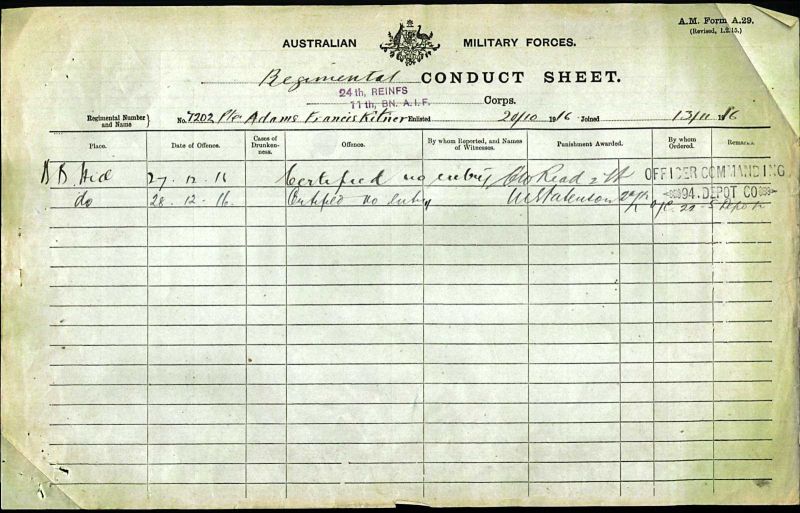 A.M. Form A.29.
(Revised, 1.2.15.)
AUSTRALIAN MILITARY FORCES.
Regimental CONDUCT SHEET.
24th, REINFS
11th, BN. A.I.F. Corps.
Regimental Number and Name } No. 7202 Pte Adams Francis Kitner Enlisted 20/10 1916 Joined 13/11 1916
Place. Date of Offence. Cases of Drunken-ness. Offence. By whom Reported, and Names of Witnesses. Punishment Awarded. By whom Ordered. Remarks.
27-12-16 Certified no entry Read 2 Lt OFFICER COMMANDING
do 28-12-16. Certified no entry 94. DEPOT CO
O/C 22-5 Depot